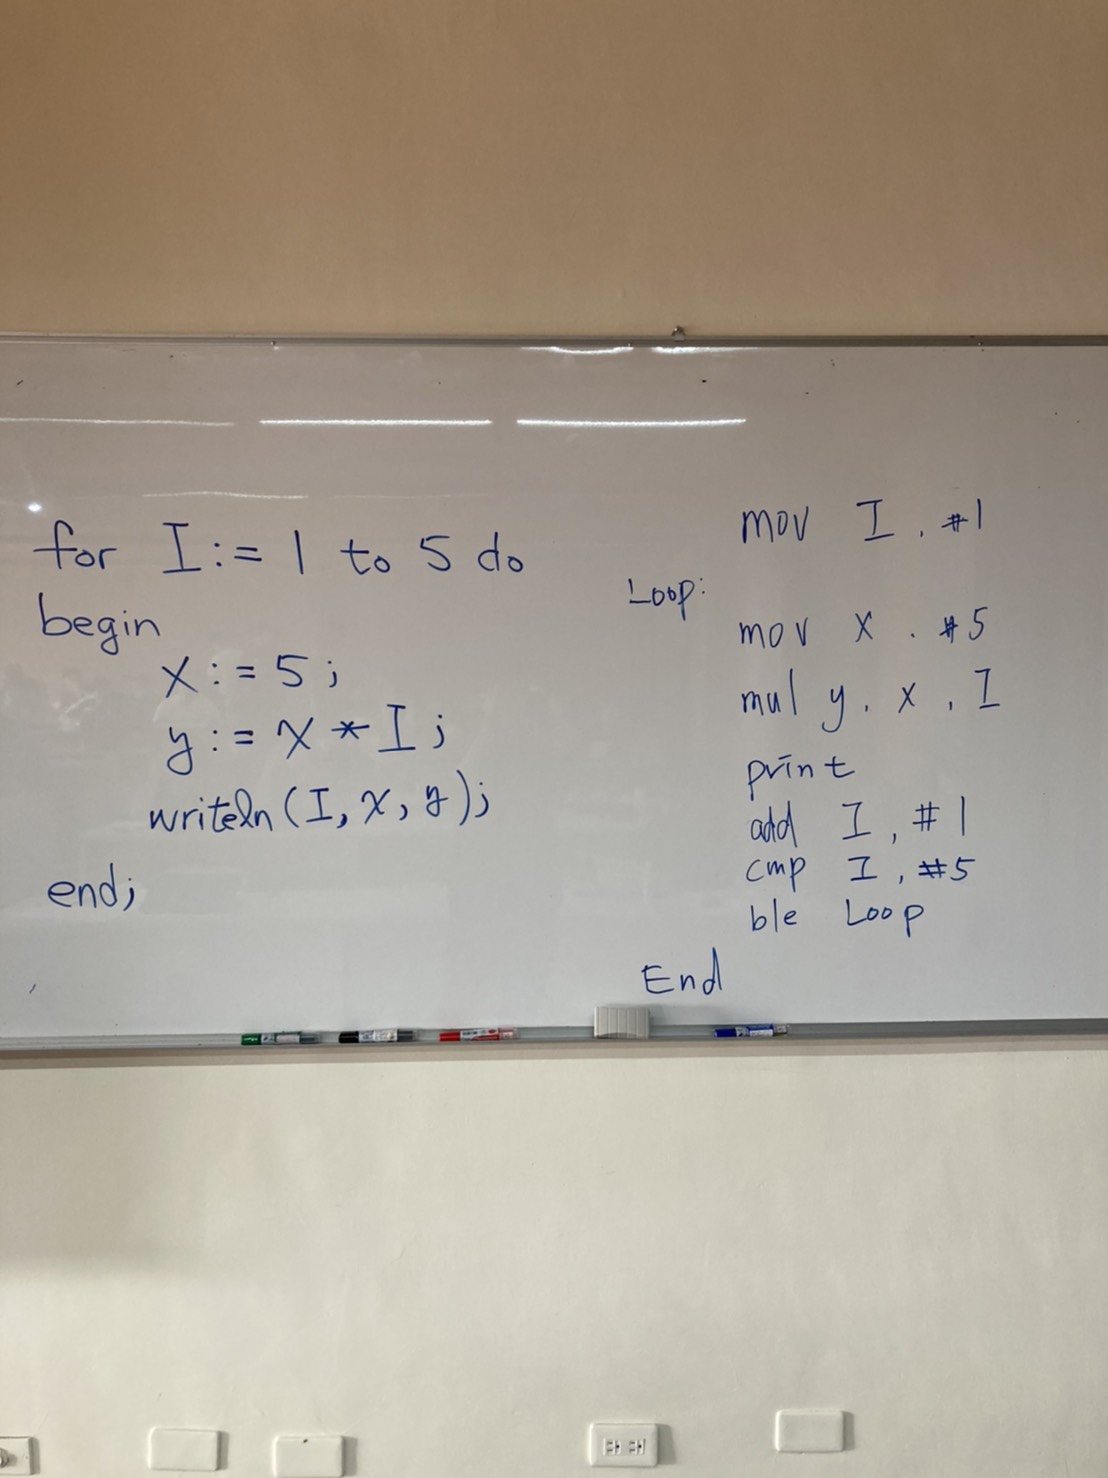 for I := 1 to 5 do
begin
x := 5;
y := x * I;
writeln(I, x, y);
end;
mov I, #1
Loop:
mov x . #5
mul y, x, I
print
add I, #1
cmp I, #5
ble Loop
End